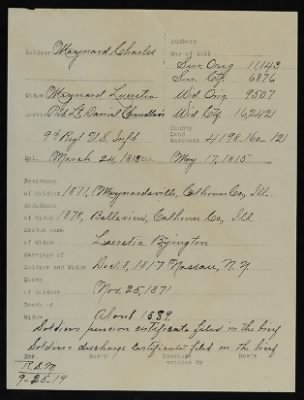 Numbers
Soldier Maynard Charles War of 1812
Surv. Orig 11,143
Surv. Ctf. 6876
Widow Maynard Lucretia Wid Orig 9507
Service Pvt. Lt. Daniel Chandler's Wid Ctf. 16,242
9th Regt U.S. Inft. Bounty
Land
Warrants 4198-160-12
March 24, 1813 May 17, 1815
Residence
of Soldier 1871, Maynardsville, Calhoun Co, Ill.
Residence
of Widow 1878, Belleview, Calhoun Co, Ill
Maiden name
of Widow Lucretia Byington
Marriage of
Soldier and Widow Dec. 8, 1817 Nassau, N.Y.
Death
of Soldier Nov. 25, 1871
Death of
Widow About 1889
Soldiers pension certificate filed in the brief
Soldiers discharge certificate filed in the brief
written by
R.S.M
9-26-19